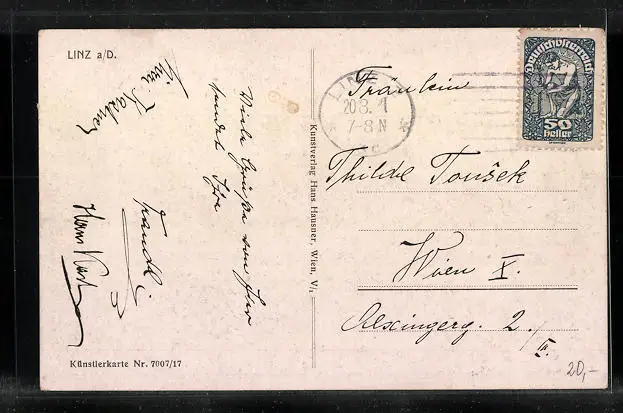 LINZ a/D.
Viele Grüße von Ihr
sendet Ihr
Frandl
Hans Kast
Künstlerkarte Nr. 7007/17
Kunstverlag Hans Hausner, Wien, V/1
LINZ
20.3.21
7-8 N
* c *
Deutschösterreich
50
heller
Fräulein
Thilde Toušek
Wien X.
Alxingerg. 2./
III.
20,-